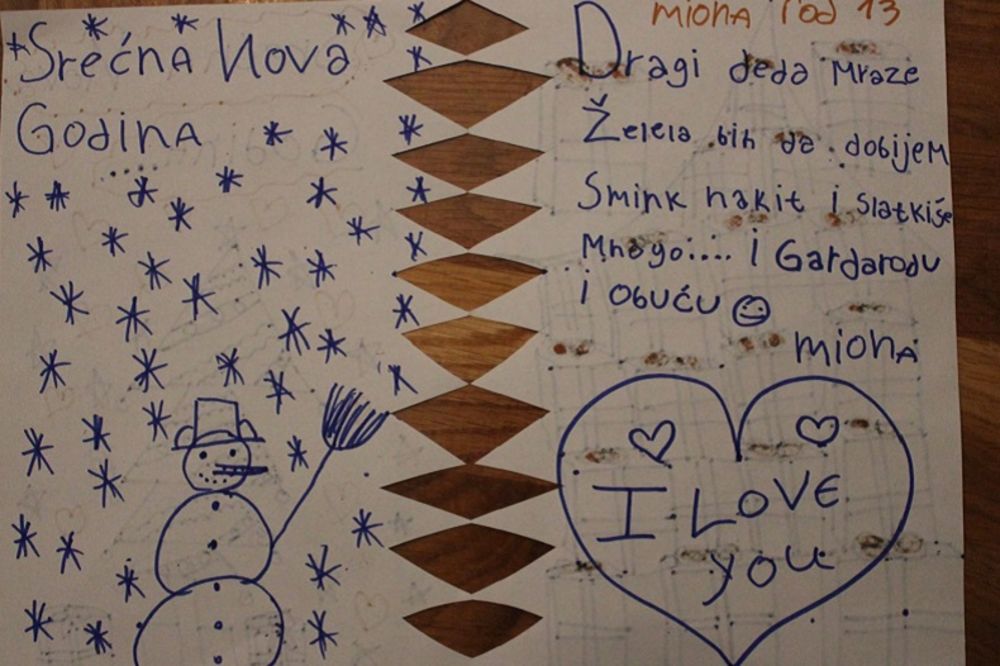 Srećna Nova
Godina
miona rođ 13
Dragi deda Mraze
Želela bih da dobijem
Šmink nakit i slatkiše
Mnogo.... i Gardarodu
i obuću
miona
I LOVE
you